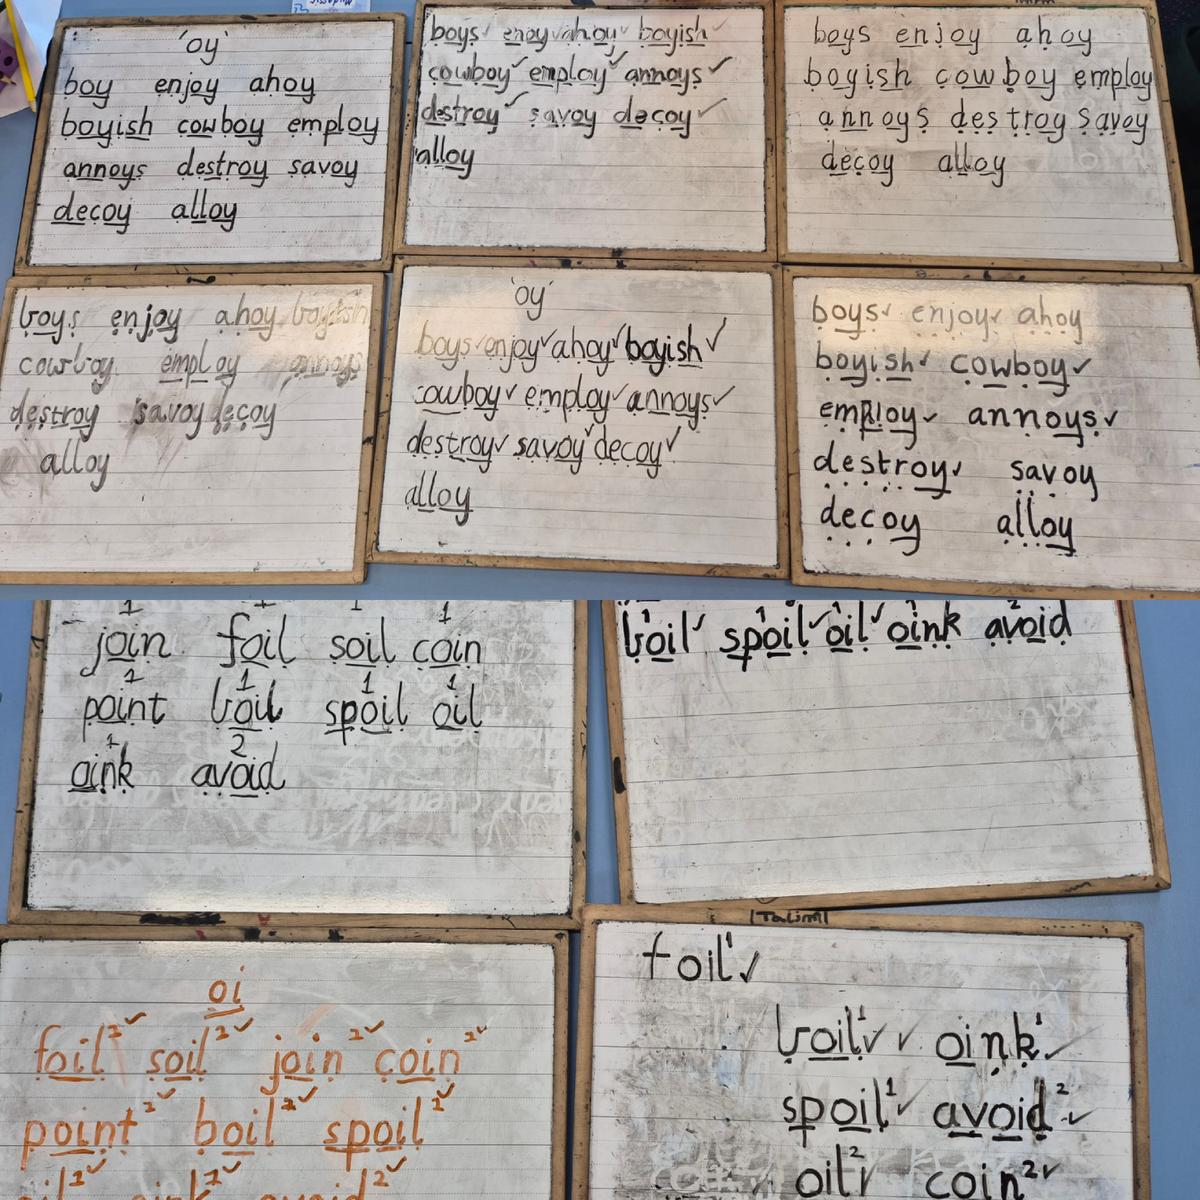 'oy'
boy enjoy ahoy
boyish cowboy employ
annoys destroy savoy
decoy alloy
boys✓ enoy✓ ahoy✓ boyish✓
cowboy✓ employ✓ annoys✓
destroy✓ savoy decoy✓
alloy
boys enjoy ahoy
boyish cowboy employ
annoys destroy savoy
decoy alloy
boys enjoy ahoy boyish
cowboy employ annoys
destroy savoy decoy
alloy
'oy'
boys✓ enjoy✓ ahoy✓ boyish✓
cowboy✓ employ✓ annoys✓
destroy✓ savoy✓ decoy✓
alloy
boys✓ enjoy✓ ahoy
boyish✓ cowboy✓
employ✓ annoys✓
destroy✓ savoy
decoy alloy
1 1 1 1
join foil soil coin
1 1 1 1
point boil spoil oil
1 2
oink avoid
1 1 1 1 2
boil✓ spoil✓ oil✓ oink avoid
oi
foil 2✓ soil 2✓ join 2✓ coin 2✓
point 2✓ boil 2✓ spoil 2✓
oil 2✓ oink 2✓ avoid 2✓
Talim
foil 1✓
boil 1✓✓ oink 1✓
spoil 1✓ avoid 2✓
oil 2✓ coin 2✓